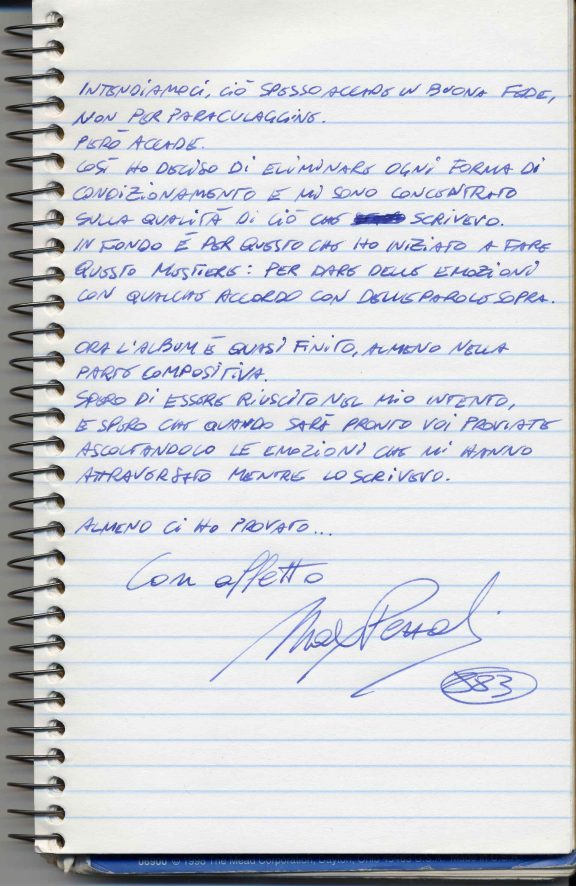 INTENDIAMOCI, CIÒ SPESSO ACCADE IN BUONA FEDE,
NON PER PARACULAGGINE.
PERÒ ACCADE.
COSÌ HO DECISO DI ELIMINARE OGNI FORMA DI
CONDIZIONAMENTO E MI SONO CONCENTRATO
SULLA QUALITÀ DI CIÒ CHE SCRIVEVO.
IN FONDO È PER QUESTO CHE HO INIZIATO A FARE
QUESTO MESTIERE: PER DARE DELLE EMOZIONI
CON QUALCHE ACCORDO CON DELLE PAROLE SOPRA.
ORA L'ALBUM È QUASI FINITO, ALMENO NELLA
PARTE COMPOSITIVA.
SPERO DI ESSERE RIUSCITO NEL MIO INTENTO,
E SPERO CHE QUANDO SARÀ PRONTO VOI PROVIATE
ASCOLTANDOLO LE EMOZIONI CHE MI HANNO
ATTRAVERSATO MENTRE LO SCRIVEVO.
ALMENO CI HO PROVATO...
Con affetto
Max Pezzali
883
06900 © 1998 The Mead Corporation, Dayton, Ohio 45463 U.S.A. Made in U.S.A.